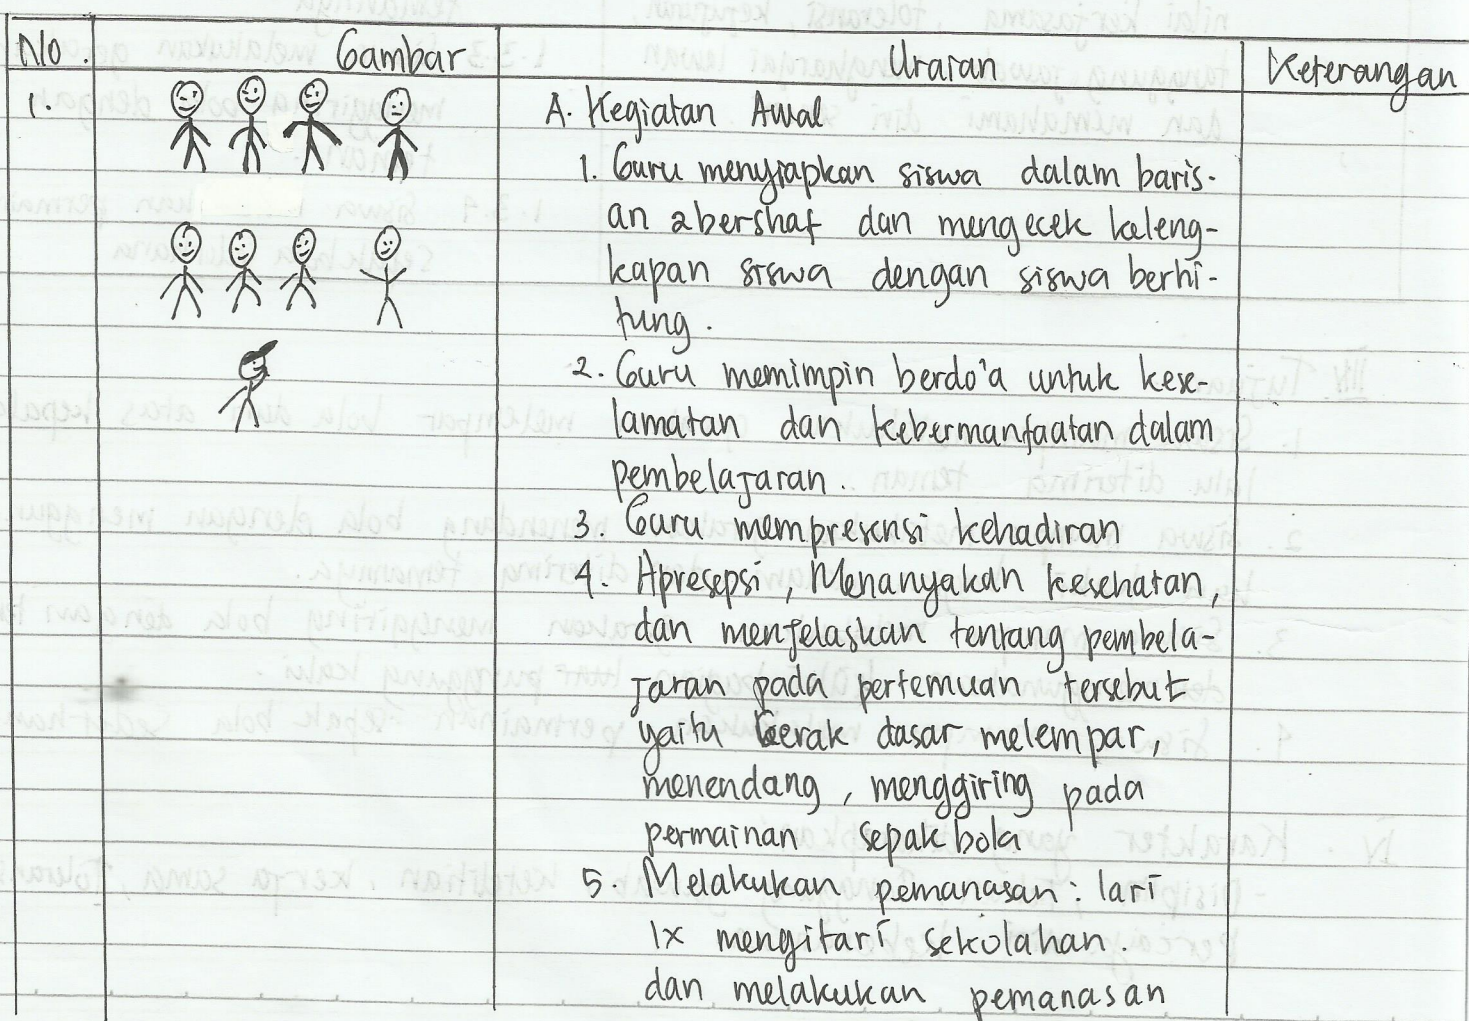 No. Gambar Uraian Keterangan
1. A. Kegiatan Awal
1. Guru menyiapkan siswa dalam baris-
an 2bershaf dan mengecek keleng-
kapan siswa dengan siswa berhi-
tung.
2. Guru memimpin berdo'a untuk kese-
lamatan dan kebermanfaatan dalam
pembelajaran.
3. Guru mempresensi kehadiran
4. Apresepsi, Menanyakan kesehatan,
dan menjelaskan tentang pembela-
jaran pada pertemuan tersebut
yaitu Gerak dasar melempar,
menendang, menggiring pada
permainan sepak bola
5. Melakukan pemanasan: lari
1x mengitari sekolahan.
dan melakukan pemanasan